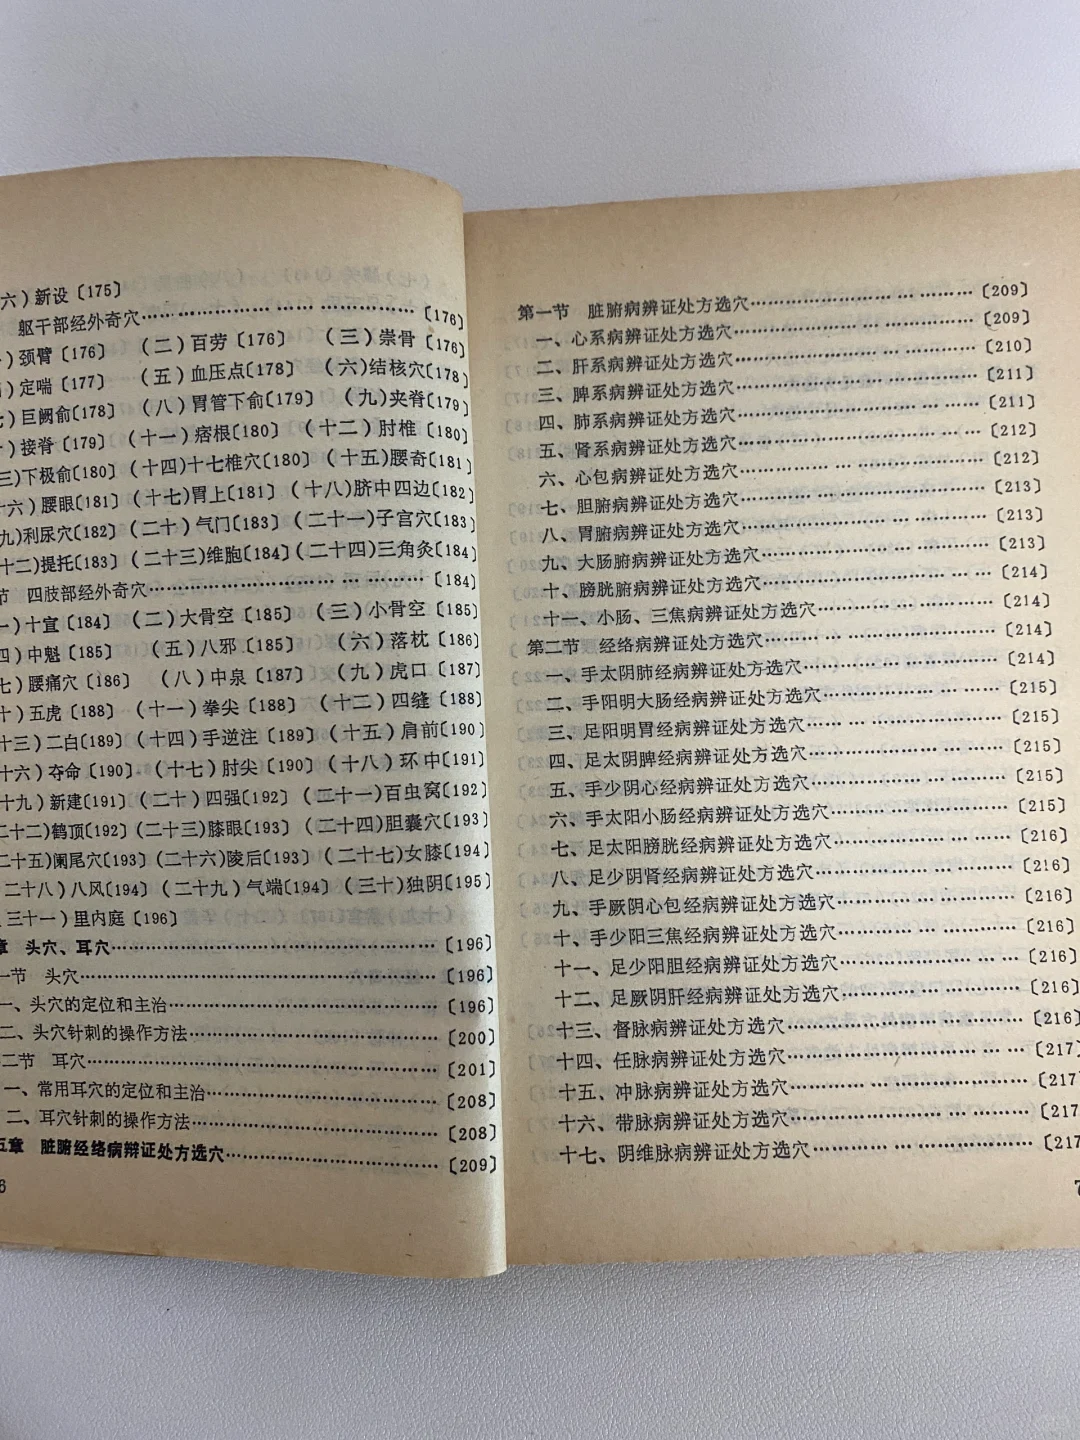 六）新设〔175〕
躯干部经外奇穴……………………………〔176〕
）颈臂〔176〕 （二）百劳〔176〕 （三）崇骨〔176〕
）定喘〔177〕 （五）血压点〔178〕 （六）结核穴〔178〕
七）巨阙俞〔178〕 （八）胃管下俞〔179〕 （九）夹脊〔179〕
）接脊〔179〕 （十一）痞根〔180〕 （十二）肘椎〔180〕
三）下极俞〔180〕（十四）十七椎穴〔180〕（十五）腰奇〔181〕
十六）腰眼〔181〕（十七）胃上〔181〕（十八）脐中四边〔182〕
九）利尿穴〔182〕（二十）气门〔183〕（二十一）子宫穴〔183〕
十二）提托〔183〕（二十三）维胞〔184〕（二十四）三角灸〔184〕
节 四肢部经外奇穴……………………………〔184〕
一）十宣〔184〕 （二）大骨空〔185〕 （三）小骨空〔185〕
四）中魁〔185〕 （五）八邪〔185〕 （六）落枕〔186〕
七）腰痛穴〔186〕 （八）中泉〔187〕 （九）虎口〔187〕
十）五虎〔188〕 （十一）拳尖〔188〕 （十二）四缝〔188〕
十三）二白〔189〕（十四）手逆注〔189〕（十五）肩前〔190〕
十六）夺命〔190〕（十七）肘尖〔190〕（十八）环中〔191〕
十九）新建〔191〕（二十）四强〔192〕（二十一）百虫窝〔192〕
二十二）鹤顶〔192〕（二十三）膝眼〔193〕（二十四）胆囊穴〔193〕
二十五）阑尾穴〔193〕（二十六）陵后〔193〕（二十七）女膝〔194〕
二十八）八风〔194〕（二十九）气端〔194〕（三十）独阴〔195〕
三十一）里内庭〔196〕
章 头穴、耳穴……………………………〔196〕
一节 头穴……………………………〔196〕
一、头穴的定位和主治……………………………〔196〕
二、头穴针刺的操作方法……………………………〔200〕
二节 耳穴……………………………〔201〕
一、常用耳穴的定位和主治……………………………〔208〕
二、耳穴针刺的操作方法……………………………〔208〕
五章 脏腑经络病辩证处方选穴……………………………〔209〕
6
第一节 脏腑病辨证处方选穴……………………………〔209〕
一、心系病辨证处方选穴……………………………〔209〕
二、肝系病辨证处方选穴……………………………〔210〕
三、脾系病辨证处方选穴……………………………〔211〕
四、肺系病辨证处方选穴……………………………〔211〕
五、肾系病辨证处方选穴……………………………〔212〕
六、心包病辨证处方选穴……………………………〔212〕
七、胆腑病辨证处方选穴……………………………〔213〕
八、胃腑病辨证处方选穴……………………………〔213〕
九、大肠腑病辨证处方选穴……………………………〔213〕
十、膀胱腑病辨证处方选穴……………………………〔214〕
十一、小肠、三焦病辨证处方选穴……………………………〔214〕
第二节 经络病辨证处方选穴……………………………〔214〕
一、手太阴肺经病辨证处方选穴……………………………〔214〕
二、手阳明大肠经病辨证处方选穴……………………………〔215〕
三、足阳明胃经病辨证处方选穴……………………………〔215〕
四、足太阴脾经病辨证处方选穴……………………………〔215〕
五、手少阴心经病辨证处方选穴……………………………〔215〕
六、手太阳小肠经病辨证处方选穴……………………………〔215〕
七、足太阳膀胱经病辨证处方选穴……………………………〔216〕
八、足少阴肾经病辨证处方选穴……………………………〔216〕
九、手厥阴心包经病辨证处方选穴……………………………〔216〕
十、手少阳三焦经病辨证处方选穴……………………………〔216〕
十一、足少阳胆经病辨证处方选穴……………………………〔216〕
十二、足厥阴肝经病辨证处方选穴……………………………〔216〕
十三、督脉病辨证处方选穴……………………………〔216〕
十四、任脉病辨证处方选穴……………………………〔217〕
十五、冲脉病辨证处方选穴……………………………〔217〕
十六、带脉病辨证处方选穴……………………………〔217
十七、阴维脉病辨证处方选穴……………………………〔217
7